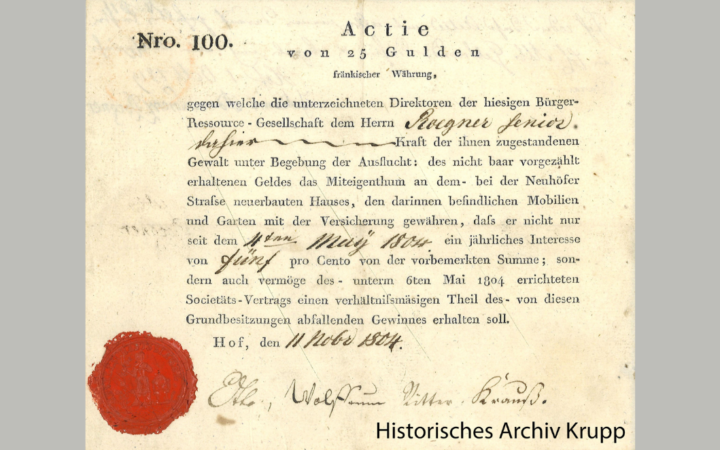 Nro. 100.
Actie
von 25 Gulden
fränkischer Währung,
gegen welche die unterzeichneten Direktoren der hiesigen Bürger-
Ressource-Gesellschaft dem Herrn Roegner senior.
dahier Kraft der ihnen zugestandenen
Gewalt unter Begebung der Ausflucht: des nicht baar vorgezählt
erhaltenen Geldes das Miteigenthum an dem- bei der Neuhöfer
Strasse neuerbauten Hauses, den darinnen befindlichen Mobilien
und Garten mit der Versicherung gewähren, daſs er nicht nur
seit dem 4ten May 1804. ein jährliches Interesse
von fünf pro Cento von der vorbemerkten Summe; son-
dern auch vermöge des- unterm 6ten Mai 1804 errichteten
Societäts-Vertrags einen verhältniſsmäsigen Theil des- von diesen
Grundbesitzungen abfallenden Gewinnes erhalten soll.
Hof, den 11 Nobr 1804.
Ritter. Krauß.
Historisches Archiv Krupp